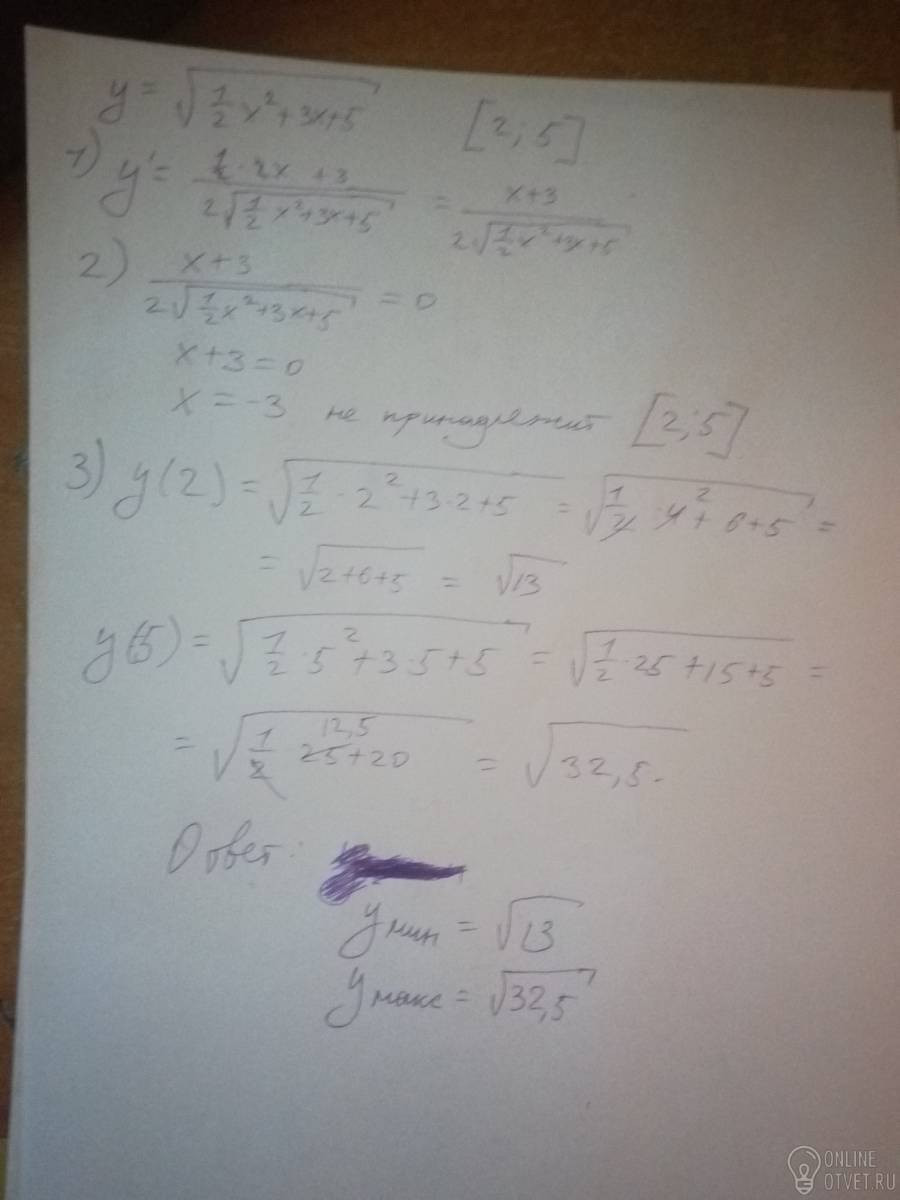 y = √(1/2 x² + 3x + 5) [2; 5]
1) y' = (1/2 · 2x + 3)/(2√(1/2 x² + 3x + 5)) = (x + 3)/(2√(1/2 x² + 3x + 5))
2) (x + 3)/(2√(1/2 x² + 3x + 5)) = 0
x + 3 = 0
x = -3 не принадлежит [2; 5]
3) y(2) = √(1/2 · 2² + 3·2 + 5) = √(1/2 · 4 2 + 6 + 5) =
= √(2+6+5) = √13
y(5) = √(1/2 · 5² + 3·5 + 5) = √(1/2 · 25 + 15 + 5) =
= √(1/2 25 12,5 + 20) = √32,5.
Ответ:
y мин = √13
y макс = √32,5
ONLINE
OTVET.RU